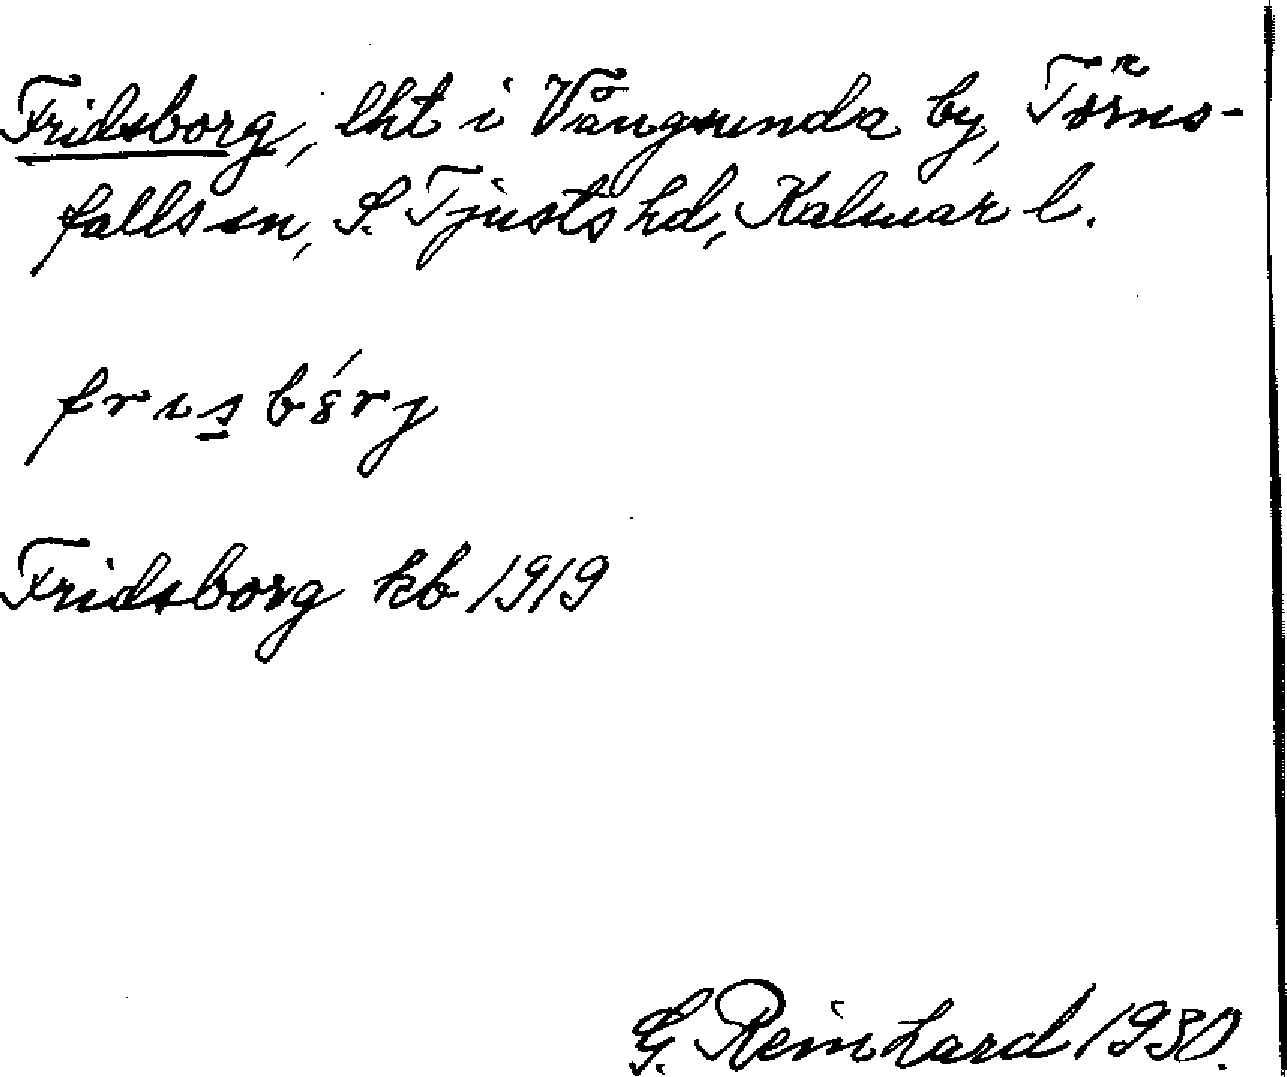 Fridsborg, lht i Vångsunda by, Törns-
falls sn, S. Tjusts hd, Kalmar l.
Fridsborg kb 1919
G. Reinhard 1930.